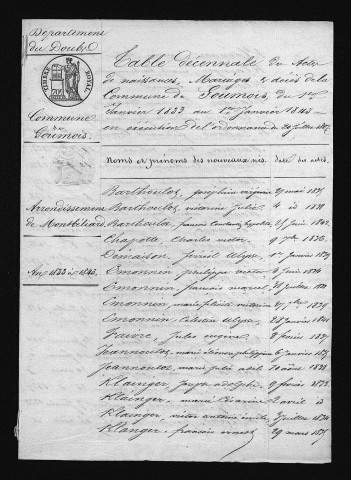 Département
du Doubs
TIMBRE ROYAL
Commune
de
Goumois.
Arrondissement
de Montbéliard
An 1833 à 1843.
Table décennale des Actes
de naissances, Mariages & décès de la
Commune de Goumois, du 1er
Janvier 1833 au 1er Janvier 1843
en exécution de l'ordonnance du 20 juillet 1807.
Noms et prénoms des nouveaux nés. date des actes.
Barthoulot, joséphine virginie 29 mai
Barthoulot, victorine julie. 4
Barthoulot, françois Constant 25 juin 1842
Chapotte, Charles victor 9
Demaison, Ulysse, 1er janvier
Emonnin, philippe victor 6 juin 1834
Emonnin, françois marcel 21 juillet
Emonnin, marie victorine
Emonnin, Celestin Ulysse, 28 janvier 1841
Faivre, jules eugène 8 février
Jeannoulot, marie philippine 6 janvier
Jeannoulot, marie julie 10 août 1838
Klainger, adolphe. 9 février
Klainger, marie Césarine 2 avril
Klainger, victor antoine 3 juillet 1834
Klainger, françois ernest, 29 mars